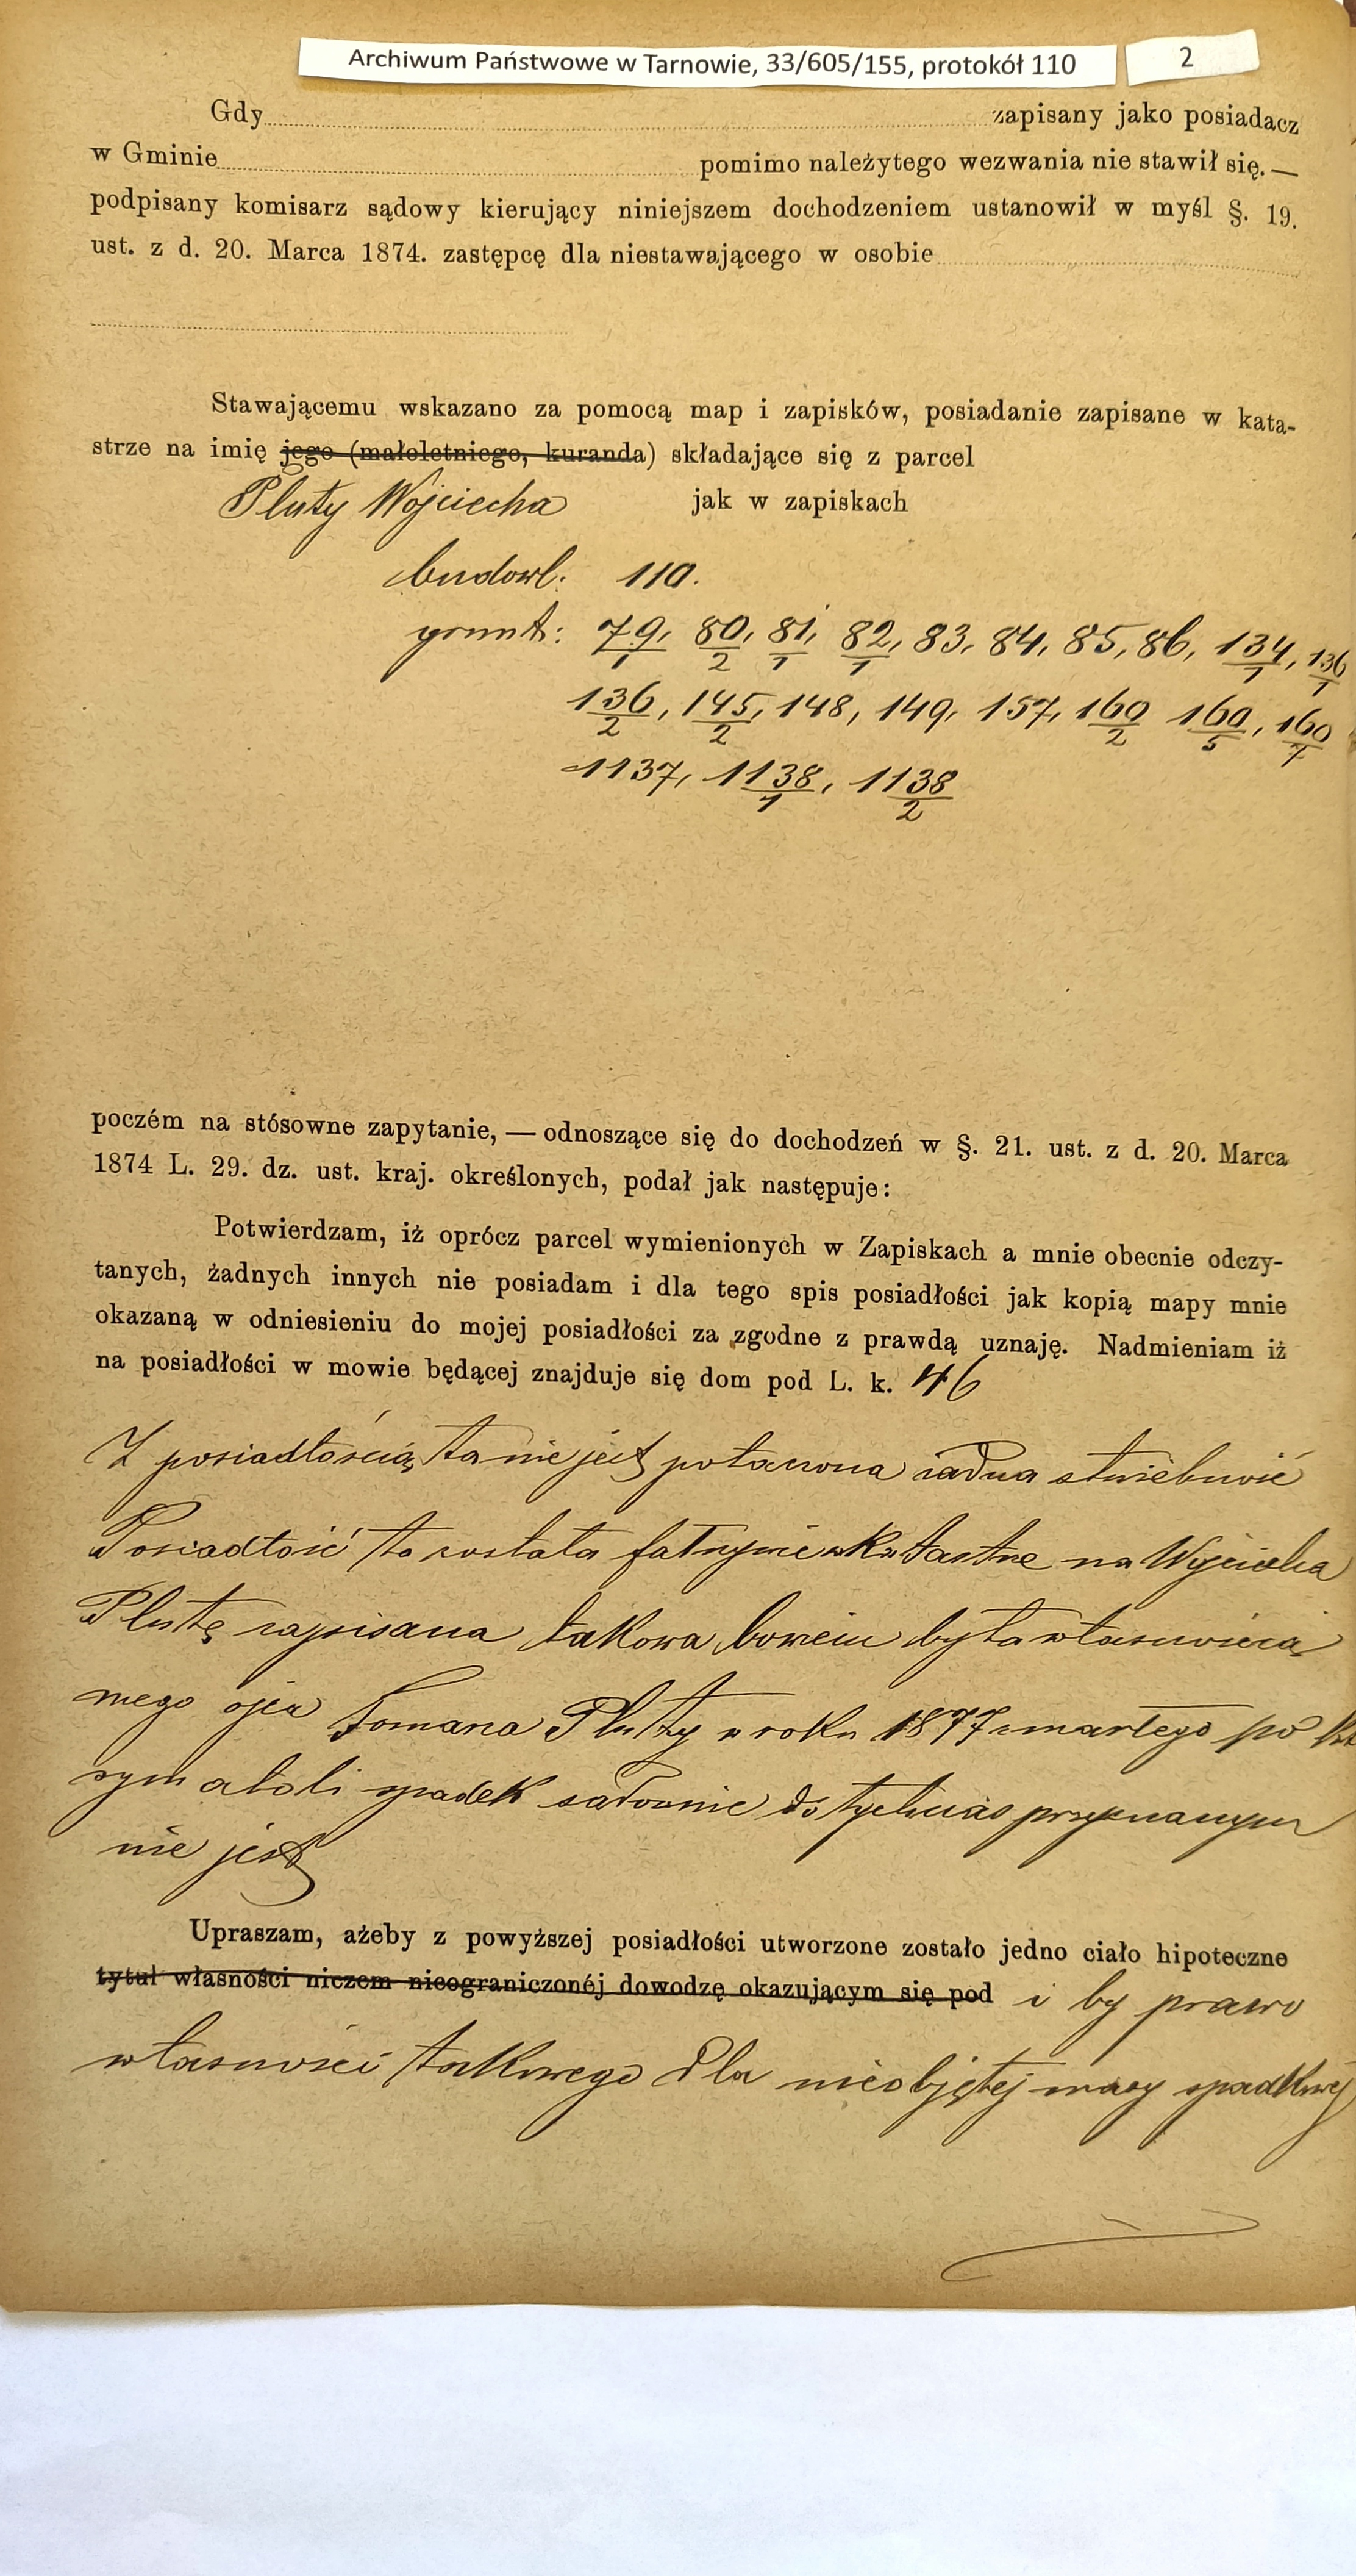 Archiwum Państwowe w Tarnowie, 33/605/155, protokół 110
2
Gdy zapisany jako posiadacz
w Gminie pomimo należytego wezwania nie stawił się. —
podpisany komisarz sądowy kierujący niniejszem dochodzeniem ustanowił w myśl §. 19.
ust. z d. 20. Marca 1874. zastępcę dla niestawającego w osobie
Stawającemu wskazano za pomocą map i zapisków, posiadanie zapisane w kata-
strze na imię jego (małoletniego, kuranda) składające się z parcel
Pluty Wojciecha jak w zapiskach
budowl: 110.
grunt: 79/1, 80/2, 81/1, 82/1, 83, 84, 85, 86, 134/1, 136/1
136/2, 145/2, 148, 149, 157, 160/2 160/5, 160/7
1137, 1138/1, 1138/2
poczém na stósowne zapytanie, — odnoszące się do dochodzeń w §. 21. ust. z d. 20. Marca
1874 L. 29. dz. ust. kraj. określonych, podał jak następuje:
Potwierdzam, iż oprócz parcel wymienionych w Zapiskach a mnie obecnie odczy-
tanych, żadnych innych nie posiadam i dla tego spis posiadłości jak kopią mapy mnie
okazaną w odniesieniu do mojej posiadłości za zgodne z prawdą uznaję. Nadmieniam iż
na posiadłości w mowie będącej znajduje się dom pod L. k. 46
Z posiadłością ta nie jest połaczona żadna służebność
Posiadłość ta została fałszywie w Katastrze na Wojciecha
Plutę zapisana takowa bowiem była własnością
mego ojca Tomasza Pluty w roku 1877 zmarłego po któ
rym atoli spadek sadownie dotychczas przyznanym
nie jest
Upraszam, ażeby z powyższej posiadłości utworzone zostało jedno ciało hipoteczne
tytuł własności niczem nieograniczonéj dowodzę okazującym się pod i by prawo
własności takowego dla nieobjętej masy spadkowej